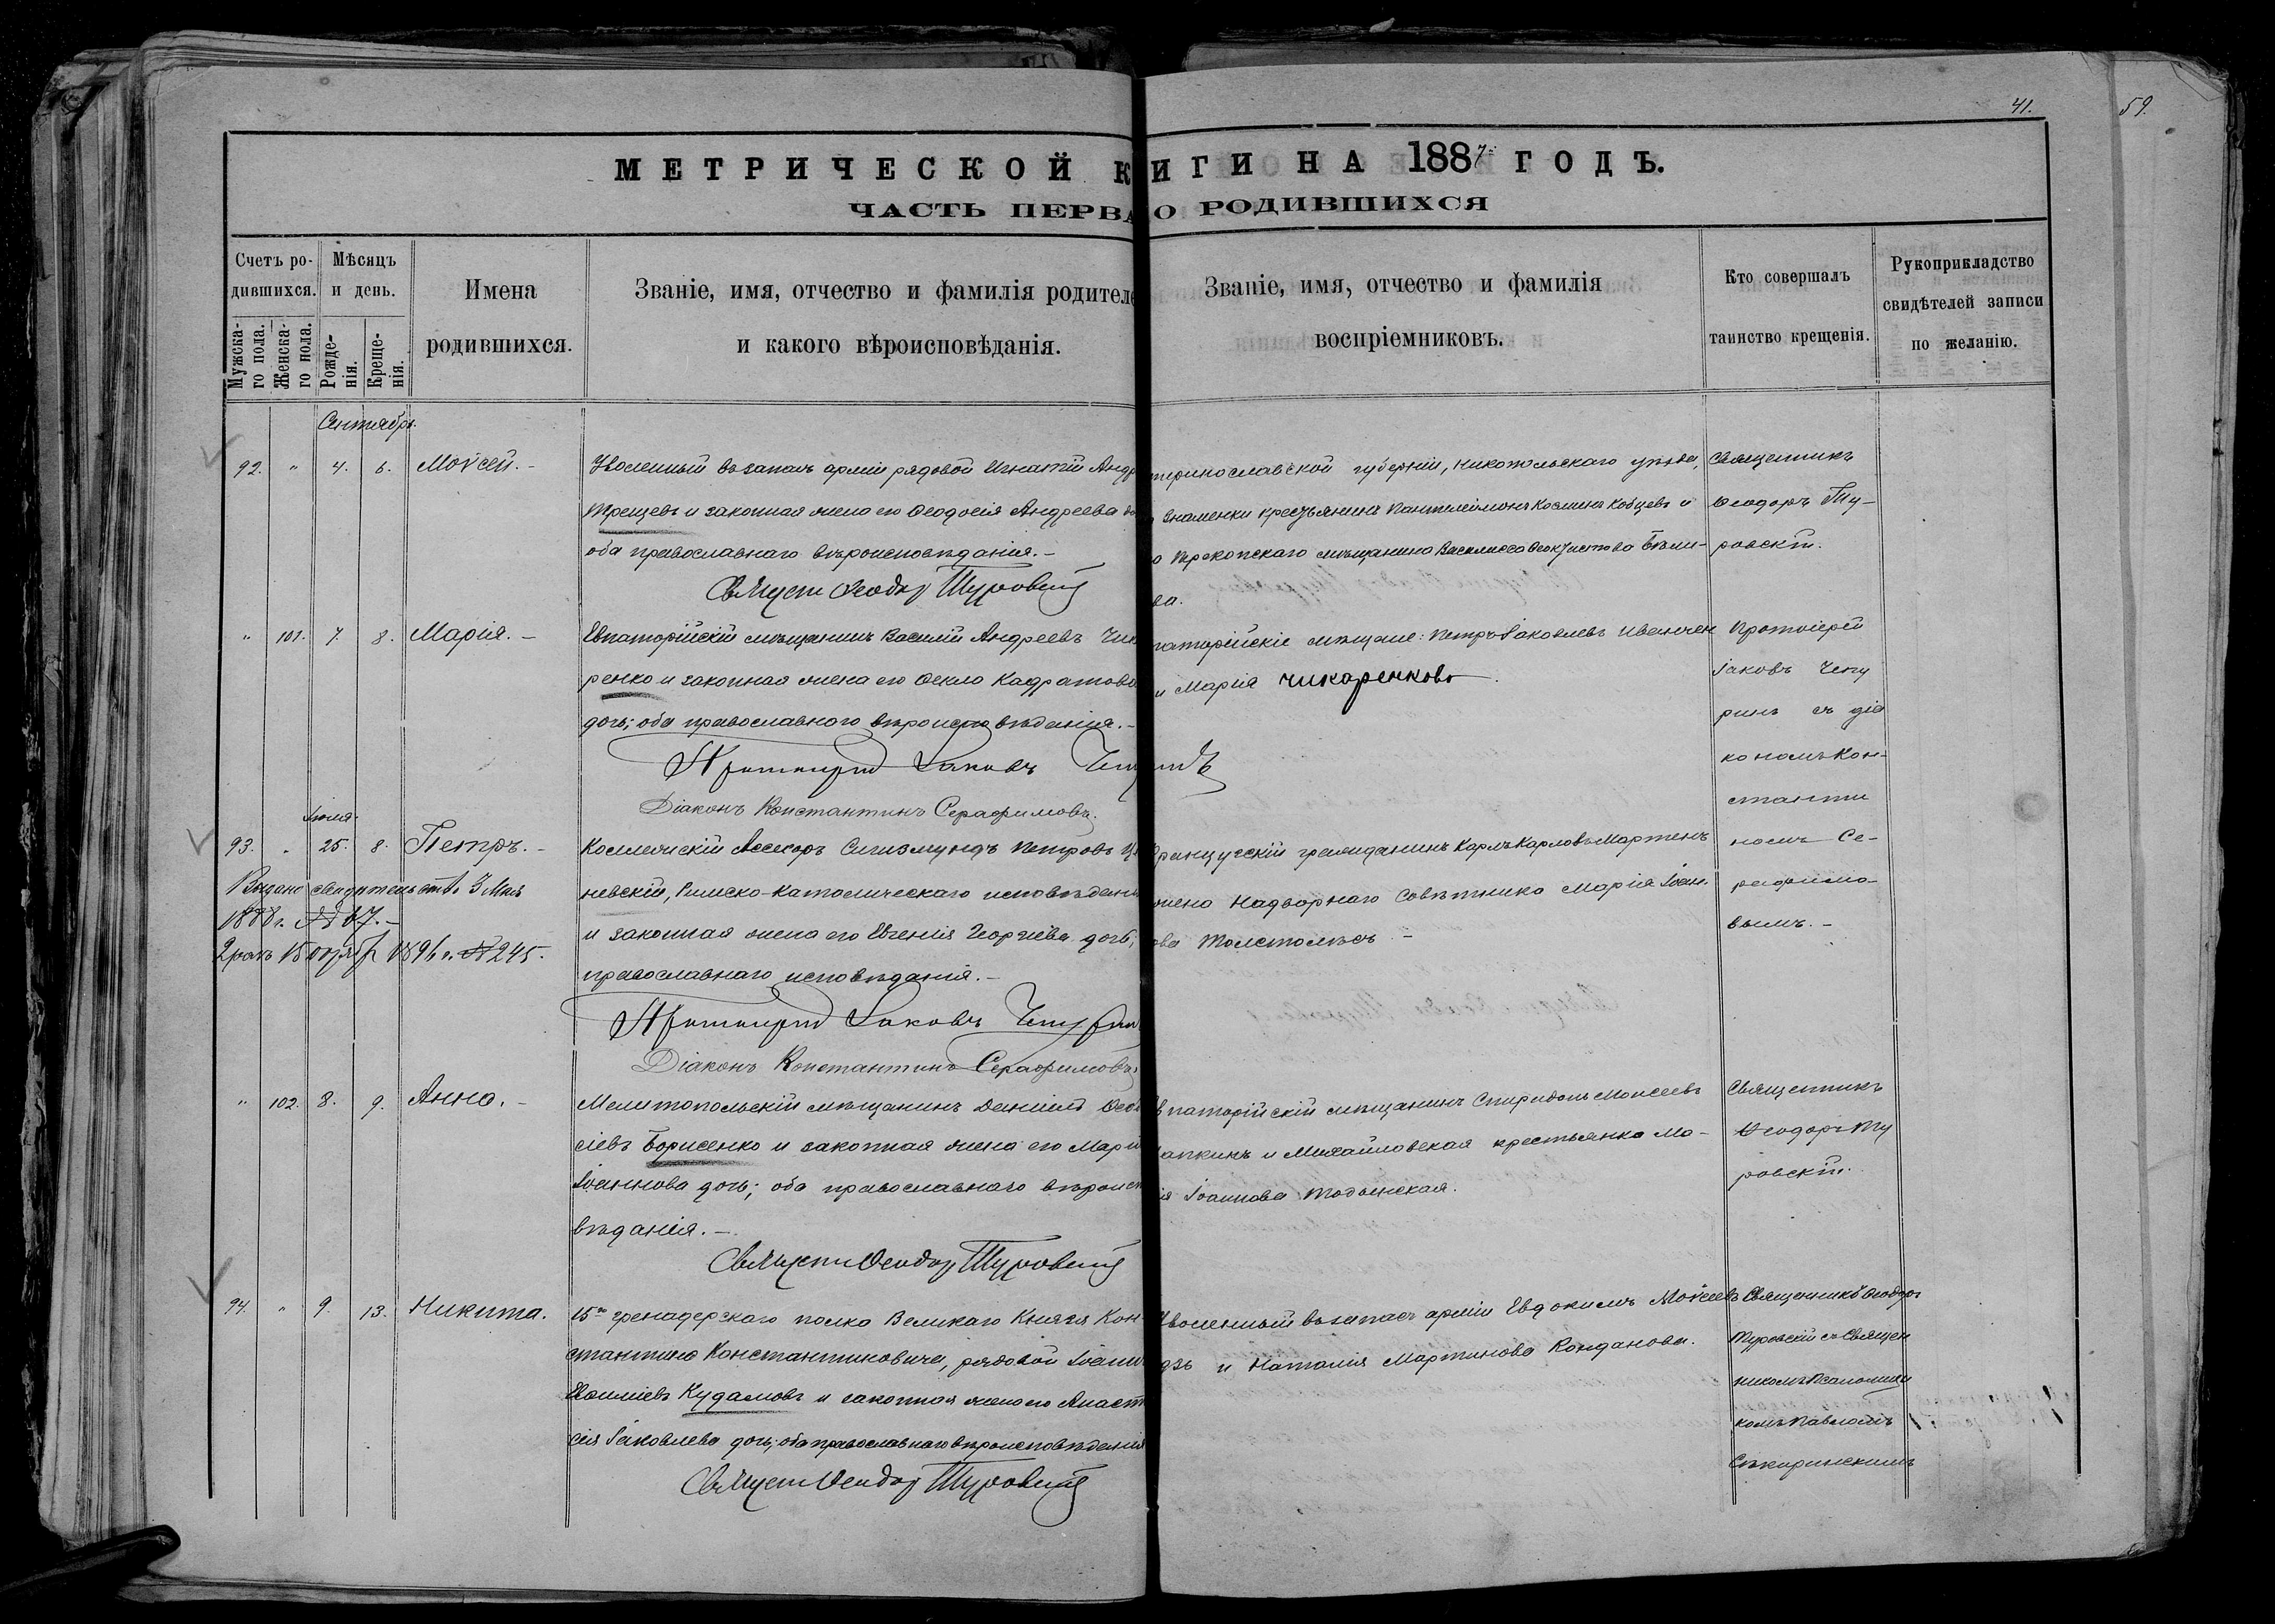 41.
59.
МЕТРИЧЕСКОЙ К ИГИ НА 1887 ГОДЪ.
ЧАСТЬ ПЕРВА О РОДИВШИХСЯ
Счетъ ро-
дившихся.
Мужска-
го пола.
Женска-
го пола.
Мѣсяцъ
и день.
Рожде-
нія.
Креще-
нія.
Имена
родившихся.
Званіе, имя, отчество и фамилія родителе
и какого вѣроисповѣданія.
Званіе, имя, отчество и фамилія
воспріемниковъ.
Кто совершалъ
таинство крещенія.
Рукоприкладство
свидѣтелей записи
по желанію.
Сентябрь.
92. " 4. 6. Моѵсей.-
Уволенный въ запасъ арміи рядовой Игнатій Андр
Трещевъ и законная жена его Ѳеодосія Андреева
оба православнаго вѣроисповѣданія.-
Ѳеодоръ Туровскій
теринославской губерніи, Никопольскаго уѣзда,
Знаменки крестьянинъ Пантелеимонъ Косминъ Кобцевъ и
Перекопскаго мѣщанина Василисса Ѳеоктистова Бѣли-
ва.
Священникъ
Ѳеодоръ Ту-
ровскій.
" 101. 7. 8. Марія.-
Евпаторійскій мѣщанинъ Василій Андреевъ Чик
ренко и законная жена его Ѳекла Кадратова
дочь; оба православнаго вѣроисповѣданія.-
Протоіерей Іаковъ Чепу инъ
Діаконъ Константинъ Серафимовъ.
паторійскіе мѣщане: Петръ Іаковлевъ Иванчен
и Марія Чикаренкова.
Протоіерей
Іаковъ Чепу
ринъ съ діа
кономъ Кон-
станти
номъ Се-
рафимо-
вымъ.-
Іюля
93. " 25. 8. Петръ.-
Выдано свидѣтельство 3 Мая
1888 г. № 67.-
2 разъ 15 1896 г. № 245.
Коллежскій Ассесоръ Сигизмундъ Петровъ
невскій, Римско-Католическаго исповѣдані
и законная жена его Евгенія Георгіева дочь;
православнаго исповѣданія.-
Протоіерей Іаковъ Чепурин
Діаконъ Константинъ Серафимовъ
Французскій гражданинъ Карлъ Карловъ Мартенъ
жена Надворнаго Совѣтника Марія Іоан-
ова Толстолѣсъ.-
" 102. 8. 9. Анна.-
Мелитопольскій мѣщанинъ Даніилъ Ѳео
сіевъ Борисенко и законная жена его Марі
Іоаннова дочь; оба православнаго вѣроисп
вѣданія.-
Ѳеодоръ Туровскій
впаторійскій мѣщанинъ Спиридонъ Моисеевъ
апкинъ и Михайловская крестьянка Ма-
ія Іоаннова Тодынская.
Священникъ
Ѳеодоръ Ту
ровскій.
94. " 9. 13. Никита.
15го гренадерскаго полка Великаго Князя Кон-
стантина Константиновича, рядовой Іоанн
Кудамовъ и законная жена его Анаст
сія Іаковлева дочь; оба православнаго вѣроисповѣданія
Ѳеодоръ Туровскій
Уволенный въ запасъ арміи Евдокимъ Моѵсеевъ
дзь и Наталія Мартинова Конданова.
Священникъ Ѳеодоръ
Туровскій съ Священ
никомъ Псаломщи
комъ Павломъ